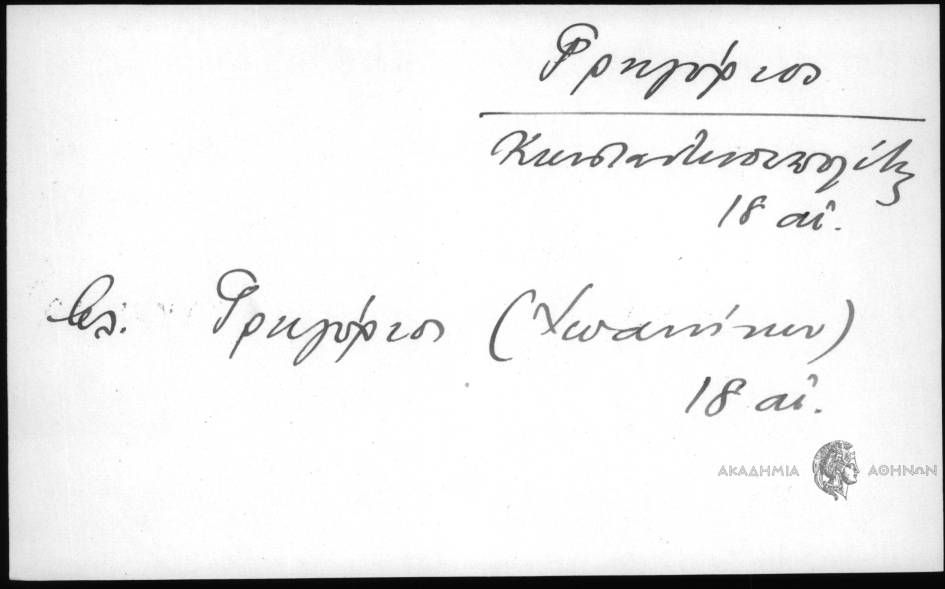 Γρηγόριος
Κωνσταντινουπολίτης
18 αἰ.
βλ. Γρηγόριος
18 αἰ.
ΑΚΑΔΗΜΙΑ ΑΘΗΝΩΝ